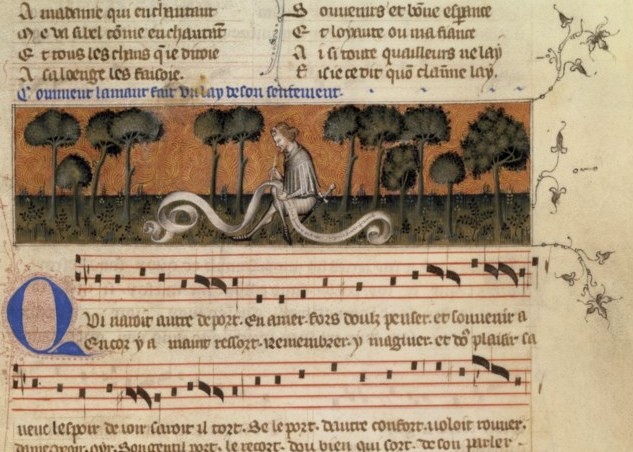 A madame qui enchantant
Me va si bel comme enchantant
Et tous les chans que disoie
A sa loenge les faisoie.
Souvenirs et bonne esperance
Et loyaute ou ma fiance
Ai si toute qu'ailleurs ne lay
Et si ce dit qu'on claimme lay.
Comment lamant fait un lay de son sentement.
Qui naroit autre deport. En amer. Fors doulz penser. et souvenir a
Encor y a maint ressort. Remembrer. ymaginer. et plaisir
uenc lespoir de ioir saroit il tort. Se le port. dautre confort. voloit rouver.
Son gentil port. le recort. dou bien qui sort. de son parler